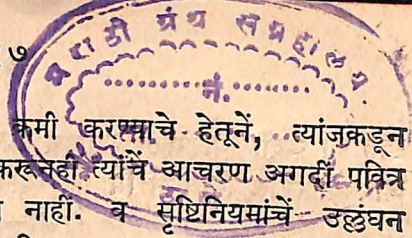 ७
मराठी ग्रंथ संग्रहालय.
नं.
कमी करण्याचे हेतूनें, त्यांजकडून
करूनही त्यांचें आचरण अगदीं पवित्र
नाहीं. व सृष्टिनियमांचें उल्लंघन